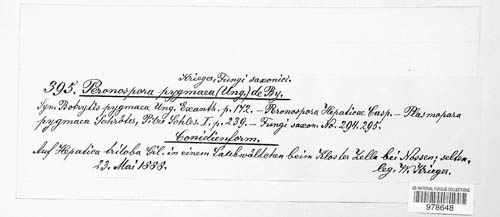 Krieger, Fungi saxonici.
395. Peronospora pygmaea (Ung.) de By.
Syn. Botrytis pygmaea Ung. Exanth. p. 172. – Peronospora Hepaticae Casp. – Plasmopara
pygmaea Schröter, Pilze Schles. I. p. 239. – Fungi saxon. No. 294. 295.
Conidienform.
Auf Hepatica triloba Gil. in einem Laubwäldchen beim Kloster Zella bei Nossen; selten.
23. Mai 1888. leg. W. Krieger.
US NATIONAL FUNGUS COLLECTIONS
978648